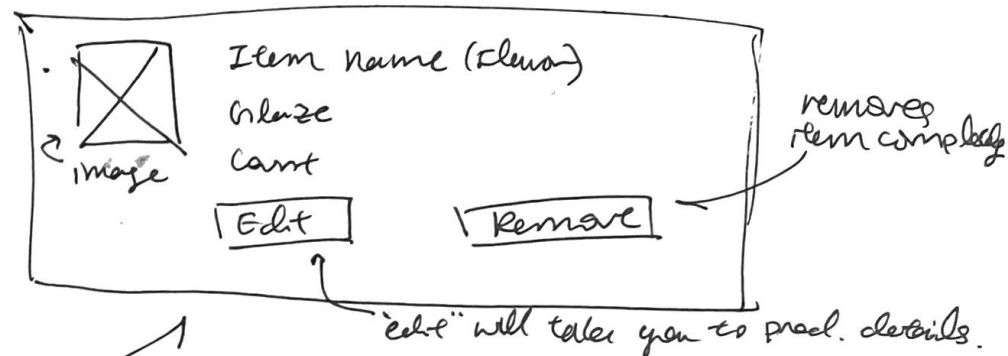 Item name (flavor)
Glaze
Count
image
Edit
Remove
removes
item completely
"edit" will take you to prod. details.